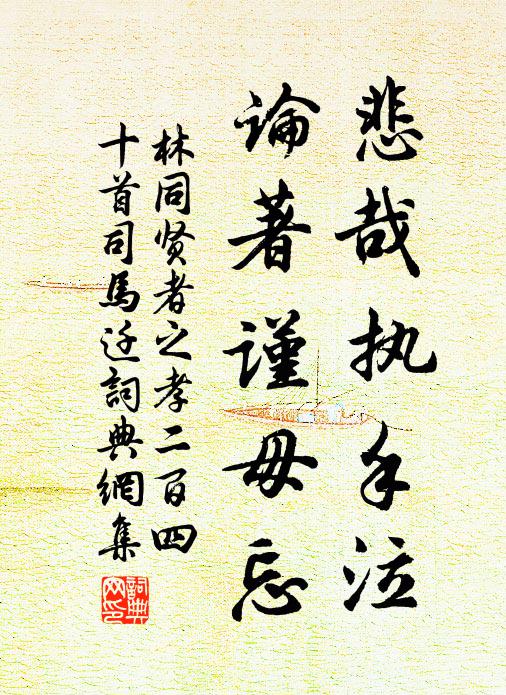 悲哉执手泣
論著謹毋忘
林同贤者之孝二百四
十首司馬迁詞典網集
詞典
网印